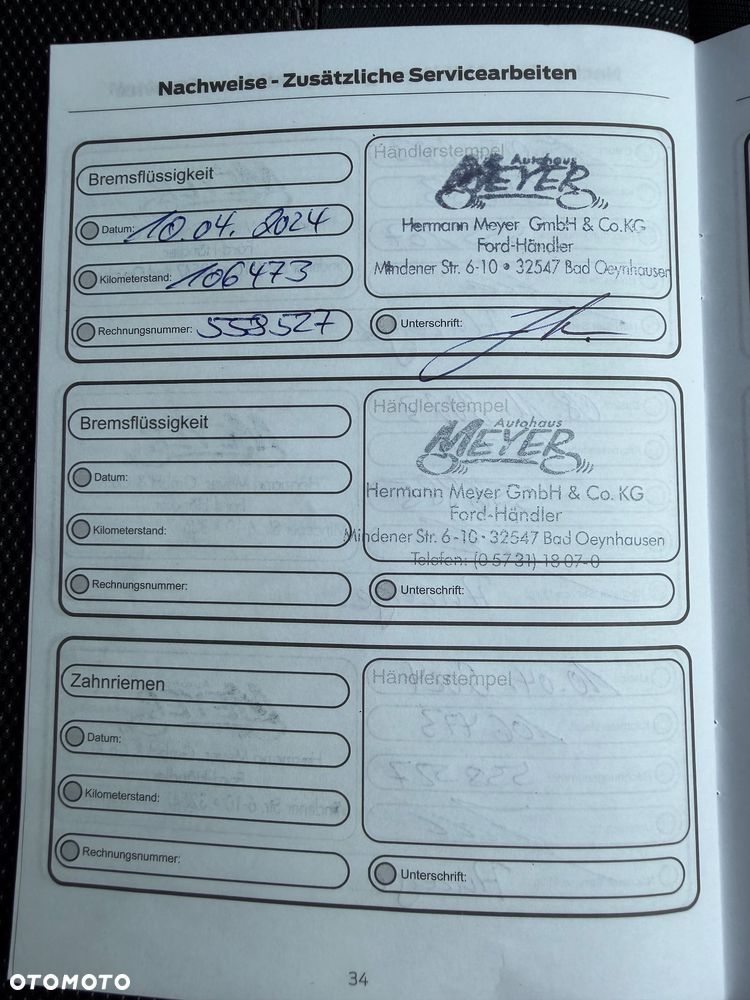 Nachweise - Zusätzliche Servicearbeiten
Bremsflüssigkeit
Händlerstempel
Autohaus
MEYER
Datum: 10.04.2024
Hermann Meyer GmbH & Co.KG
Ford-Händler
Kilometerstand: 106473
Mindener Str. 6-10 • 32547 Bad Oeynhausen
Rechnungsnummer: 558527
Unterschrift:
Bremsflüssigkeit
Händlerstempel
Autohaus
MEYER
Datum:
Hermann Meyer GmbH & Co. KG
Ford-Händler
Kilometerstand:
Mindener Str. 6-10 • 32547 Bad Oeynhausen
Telefon: (0 57 31) 18 07-0
Rechnungsnummer:
Unterschrift:
Zahnriemen
Händlerstempel
Datum:
Kilometerstand:
Rechnungsnummer:
Unterschrift:
34
OTOMOTO